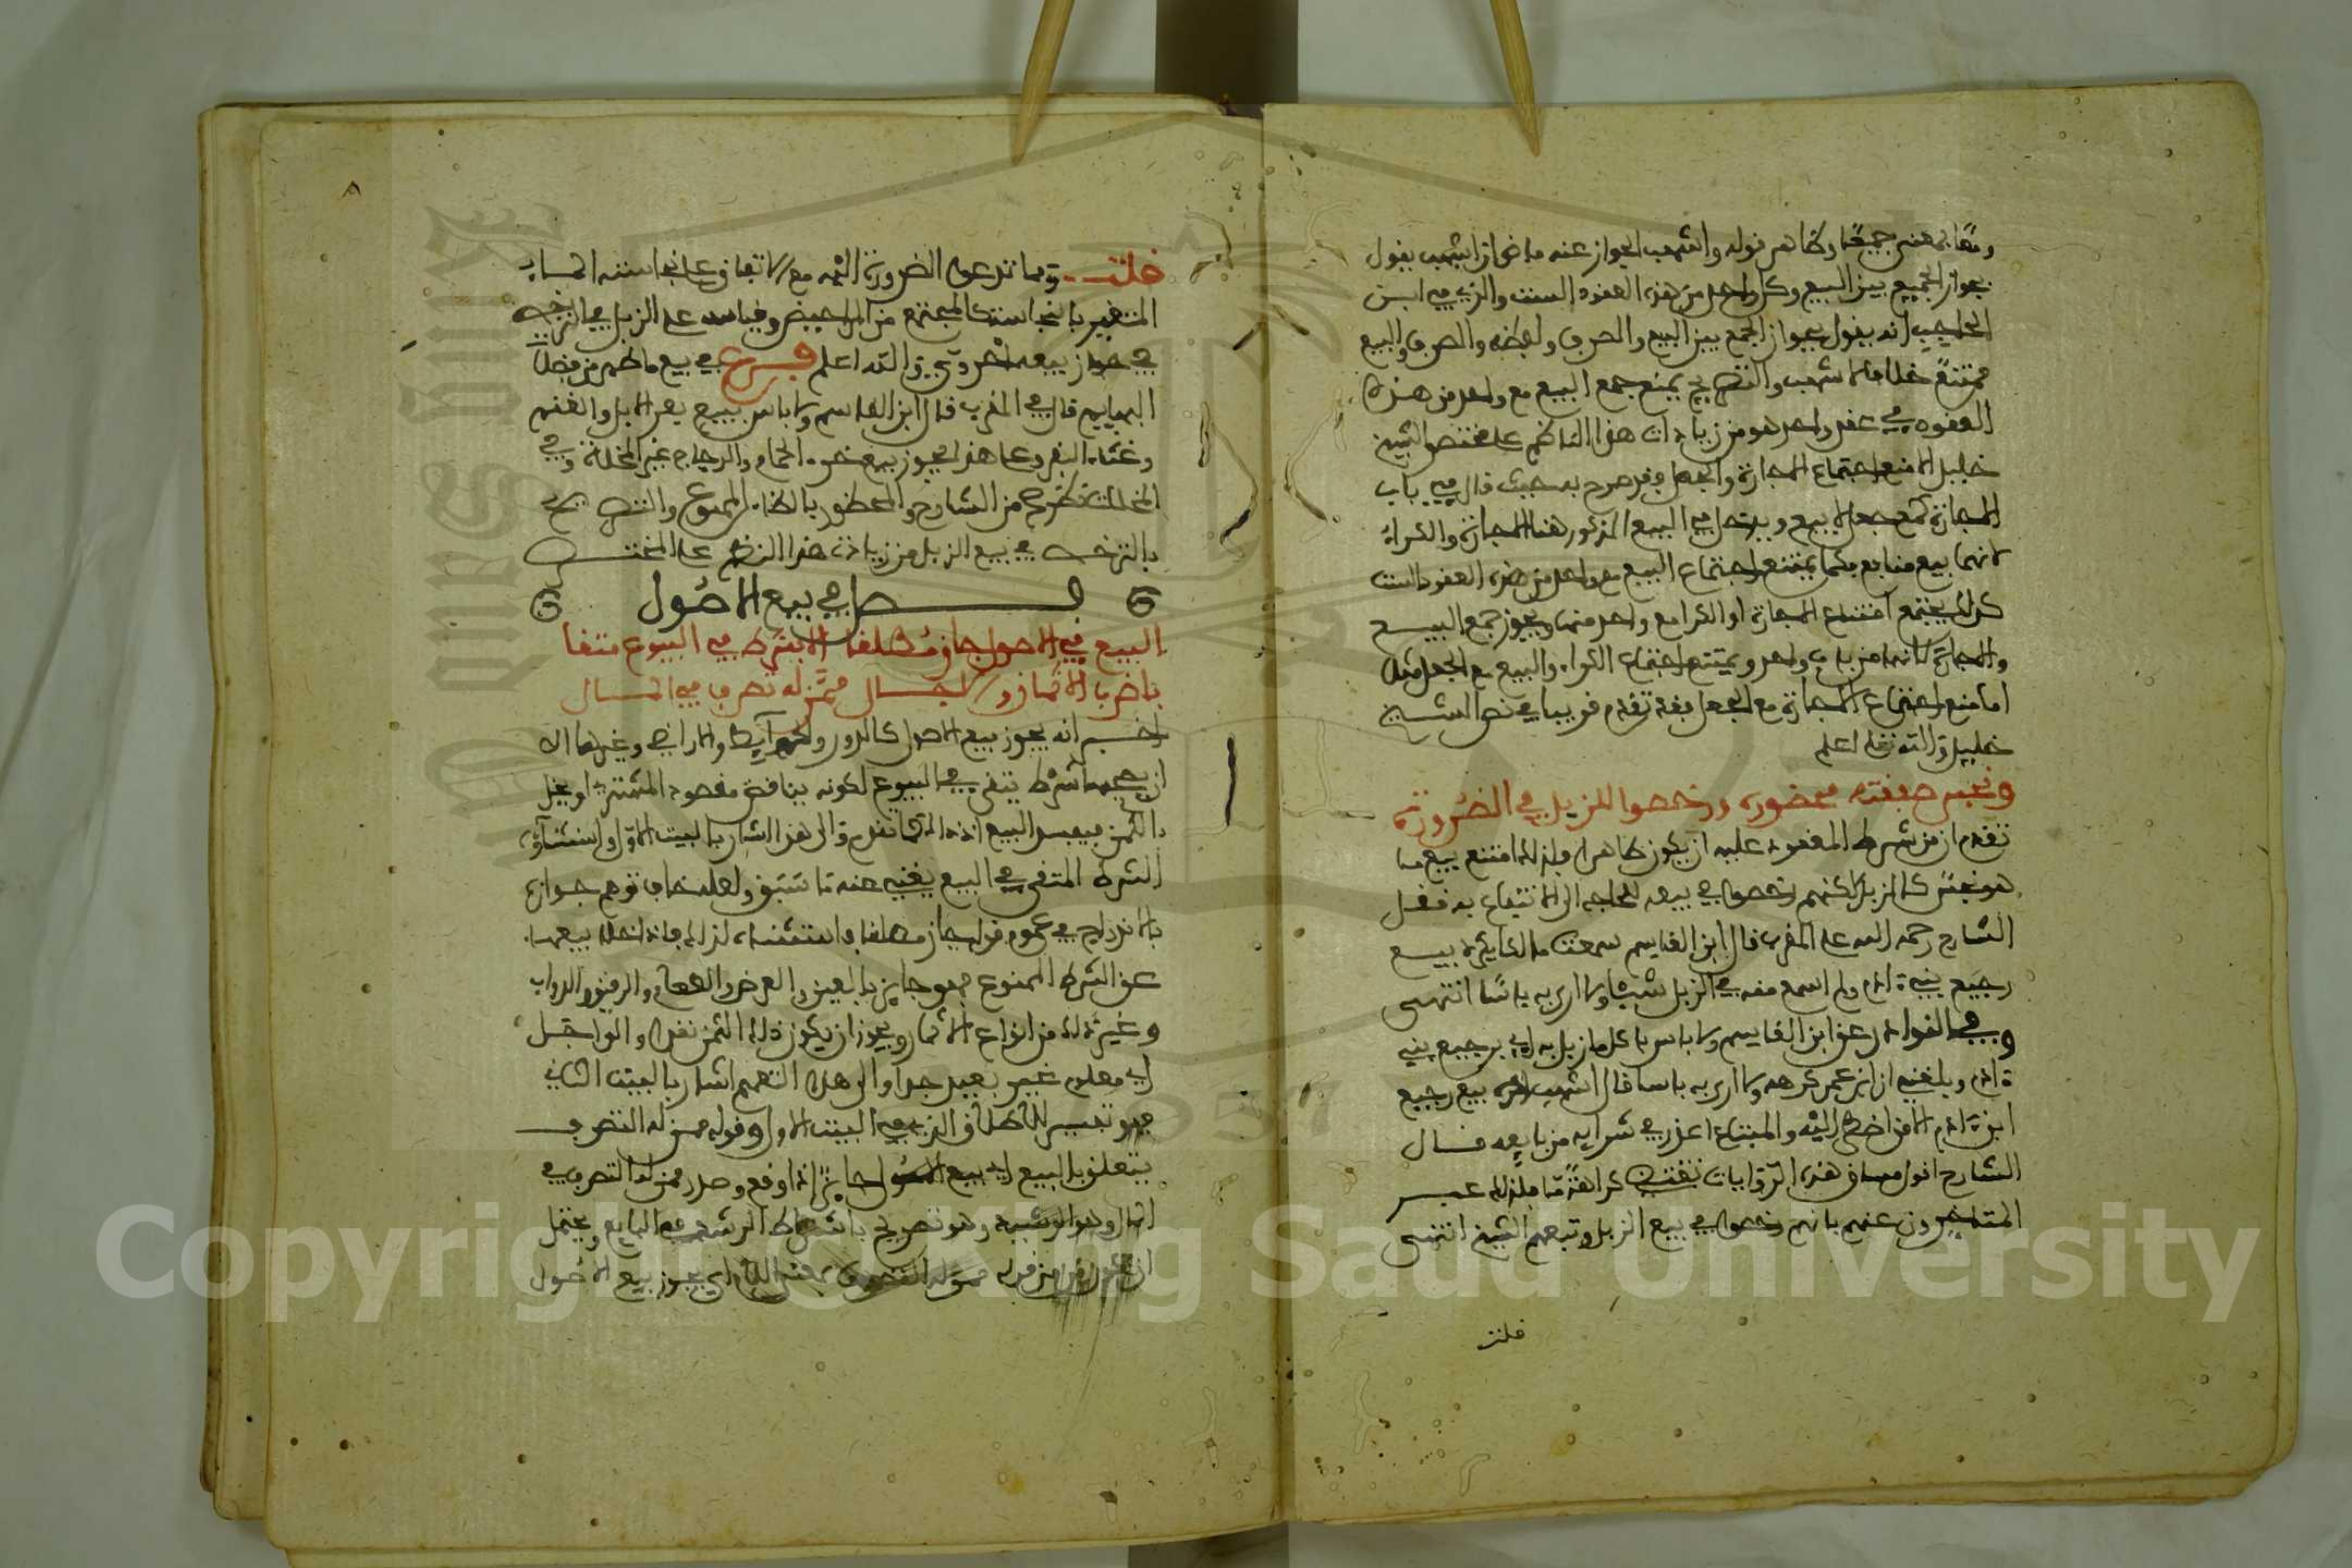 ومتفا بمعنى جميعا وظاهر قوله واشهب الجواز عنه ماض ان اشهب يقول
بجواز الجميع بين البيع وكل واحد من هذه العقود الست والذي في ابن
الحاجب انه يقول بجواز الجمع بين البيع والصرف ولفظه والصرف والبيع
ممتنع خلافا لاشهب والتصريح بمنع جمع البيع مع واحد من هذه
العقود في عقد واحد هو من زيادات هذا الناظم على مختصر الشيخ
خليل الا منع اجتماع الاجارة والجعل فقد صرح به حيث قال في باب
الاجارة كمع جعل لا بيع ويدخل في البيع المذكور هنا الاجارة والكراء
لانهما بيع منافع فكما يمتنع اجتماع البيع مع واحد من هذه العقود الست
كذلك يمتنع اجتماع الاجارة او الكرا مع واحد منها ويجوز جمع البيع
والاجارة لانهما من باب واحد ويمتنع اجتماع الكراء والبيع مع الجعل
اما منع اجتماع الاجارة مع الجعل فقد تقدم قريبا في نص الشيخ
خليل والله تعلى اعلم
ونجس صفقته محضوره ورخصوا للزبل في الضروره
تقدم ان من شرط المعقود عليه ان يكون طاهرا فلذلك امتنع بيع ما
هو نجس كالزبل لكنهم رخصوا في بيعه للحاجة الى الانتفاع به فنقل
الشارح رحمه الله على المقرب قال ابن القاسم سمعت مالكا يكره بيع
رجيع بني ءادم ولم اسمع منه في الزبل شيئا ولا ارى به باسا انتهى
وفي النوادر عن ابن القاسم ولا باس باكل ما زبل به اي برجيع بني
ءادم وبلغني ان ابن عمر كرهه ولا ارى به باسا قال اشهب اكره بيع رجيع
ابن ءادم الا من اضطر اليه والمبتاع اعذر في شرايه من بايعه قال
الشارح اقول مساق هذه الروايات تقتضي كراهة ما فلذلك عبر
المتاخرون عنهم بانهم رخصوا في بيع الزبل وتبعهم الشيخ انتهى
قلت
٨
قلت ومما تدعوا الضرورة اليه مع الاتفاق على نجاسته الماء
المتغير بالنجاسة المجتمع من المراحيض وقياسه على الزبل في الترخيص
في جواز بيعه احروي والله اعلم فرع في بيع ما طهر من فضلات
البهايم قال في المقرب قال ابن القاسم ولا باس ببيع بعر الابل والغنم
وغثاء البقر وعلى هذا يجوز بيع خرء الحمام والدجاج غير المخلاة وفي
المخلات من الشارح والمحظور بالظاء الممنوع والتصريح
بالترخيص في بيع الزبل من زيادات هذا النظم على المختصر
فصل في بيع الاصول
البيع في الاصول جاز مطلقا الا بشرط في البيوع متقا
باضرب الاثمان والاجال ممن له تصرف في المال
اخبر انه يجوز بيع الاصول كالدور والارضي وغيرهما الا
ان يصحبها شرط يتقى في البيوع لكونه يناقض مقصود المشتري او يخل
بالثمن فيفسد البيع اذ ذاك كما تقدم والى هذا اشار بالبيت الاول واستثناؤه
الشرط المتقى في البيع يغني عنه ما سبق ولعله خاف توهم جوازه
بالاندراج في عموم قوله جاز مطلقا فاستثناه لذلك فاذا خلا بيعها
عن الشرط الممنوع فهو جايز بالعين والعرض والطعام والرقيق والدواب
وغير ذلك من انواع الاثمان ويجوز ان يكون ذلك الثمن نقدا والى اجل
اي معلوم غير بعيد جدا والى هذا التعميم اشار بالبيت الثاني
فهو تفسير للاطلاق الذي في البيت الاول وقوله ممن له التصرف
يتعلق بالبيع اي بيع الاصول جايز اذا وقع وصدر ممن له التصرف في
المال وهو الرشيد وهو تصريح باشتراط الرشد في البايع ويحتمل
ان من قوله ممن له التصرف بمعنى اللام اي يجوز بيع الاصول
Copyright © King Saud University